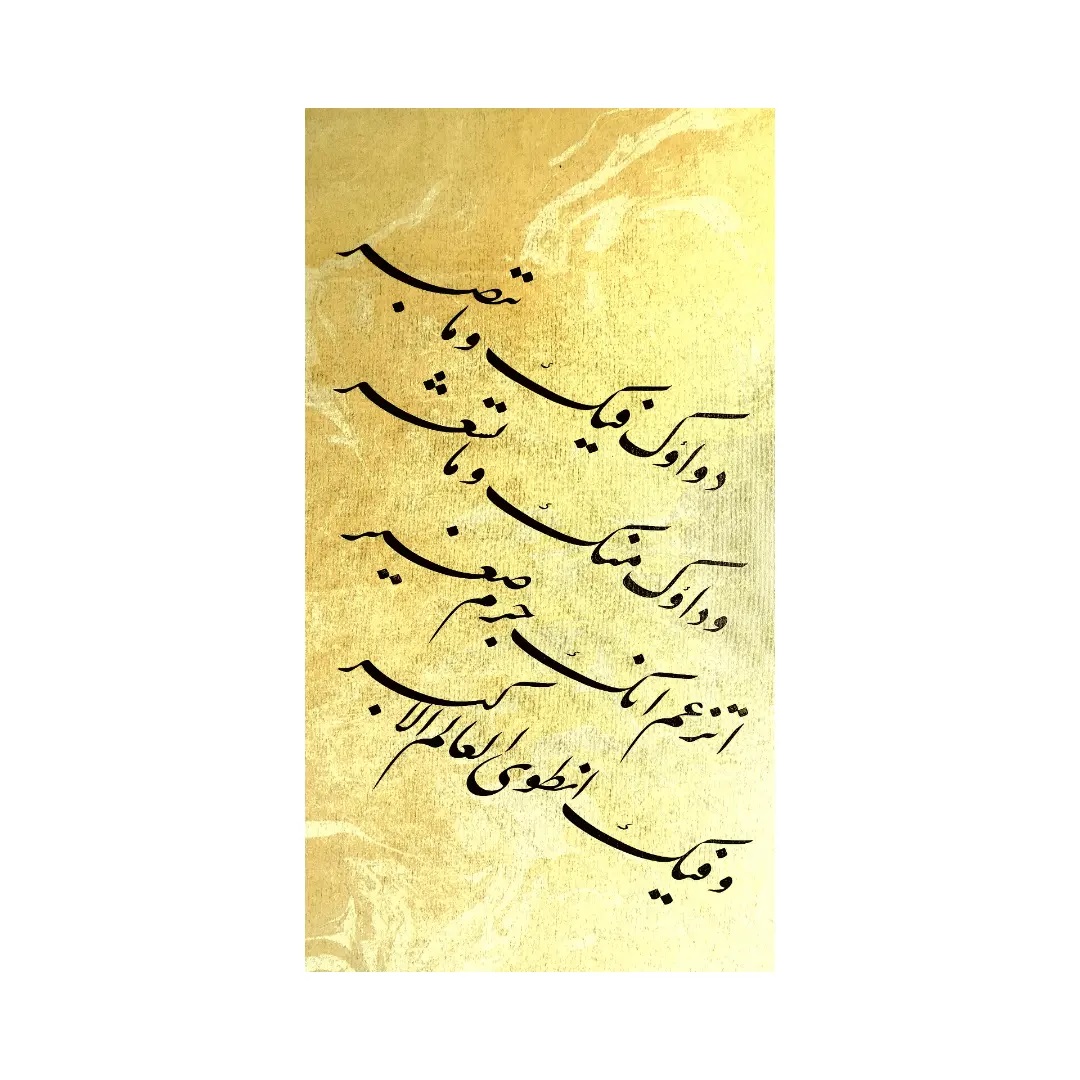 دواؤك فيك وما تبصر
وداؤك منك وما تشعر
اتزعم انك جرم صغير
وفيك انطوى العالم الاكبر